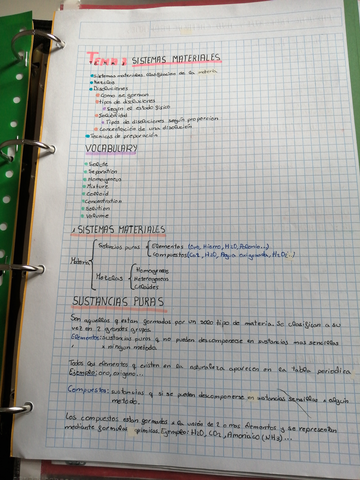 TEMA 2 SISTEMAS MATERIALES
Sistemas materiales. Clasificación de la materia
Mezclas
Disoluciones
Cómo se forman
Tipos de disoluciones
Según el estado físico
Solubilidad
Tipos de disoluciones según proporción
Concentración de una disolución
Técnicas de preparación
VOCABULARY
Solute
Separation
Homogenius
Mixture
Colloid
Concentration
Solution
Volume
SISTEMAS MATERIALES
Materia
Sustancias puras
Elementos (Oro, Hierro, H2O, Polonio...)
Compuestos (CO2, H2O, Agua oxigenada, H2O2..)
Mezclas
Homogenea
Heterogenea
Coloides
SUSTANCIAS PURAS
Son aquellas q estan formadas por un solo tipo de materia. Se clasifican a su
vez en 2 grandes grupos
Elementos: sustancias puras q no pueden descomponerse en sustancias mas sencillas
x ningun metodo.
Todos los elementos q existen en la naturaleza aparecen en la tabla periodica
Ejemplo: oro, oxigeno...
Compuestos: sustancias q si se pueden descomponerse en sustancias sencillas x algún
metodo.
Los compuestos estan formados x la unión de 2 o mas elementos y se representan
mediante formulas químicas. Ejemplo: H2O, CO2, Amoniaco (NH3)...